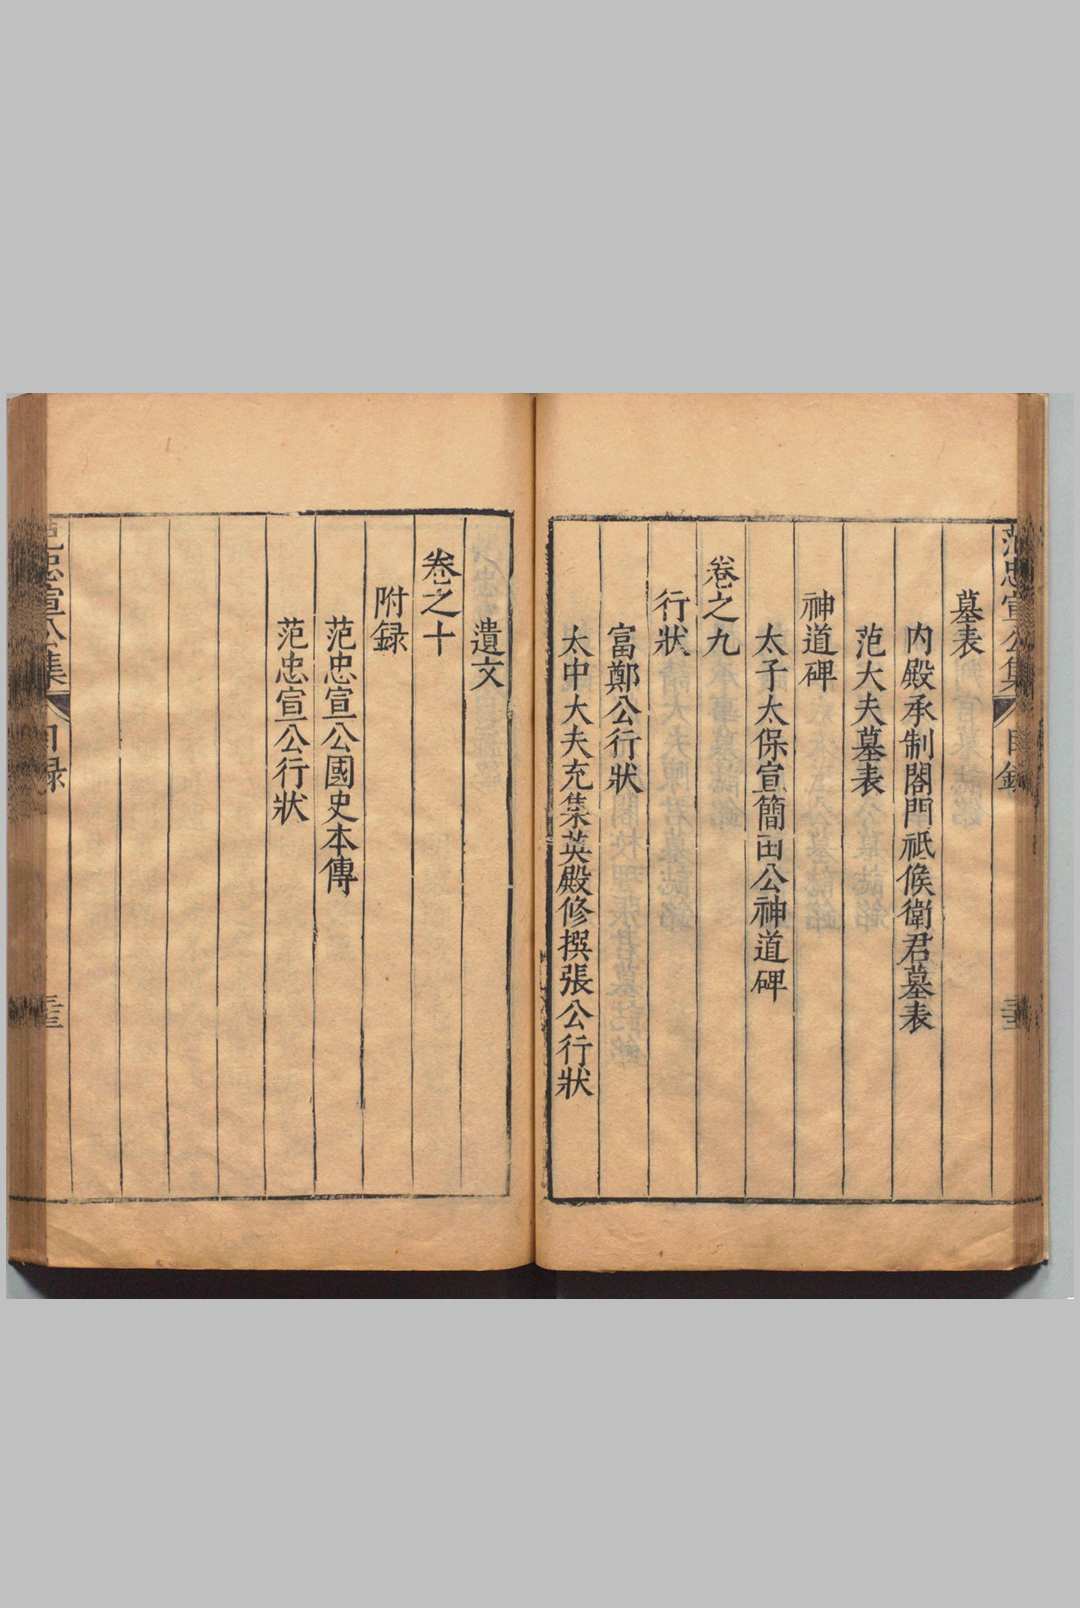 范忠宣公集 目錄
墓表
内殿承制閤門祗候衛君墓表
范大夫墓表
神道碑
太子太保宣簡田公神道碑
卷之九
行狀
富鄭公行狀
太中大夫充集英殿修撰張公行狀
遺文
卷之十
附録
范忠宣公國史本傳
范忠宣公行狀
范忠宣公集 目録